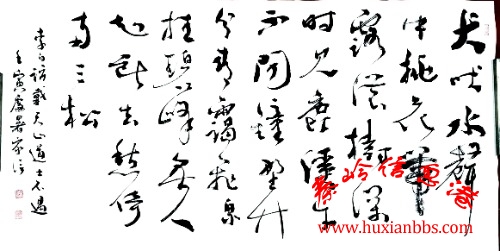 犬吠水聲
中桃花帶
露濃樹深
时见鹿溪午
不闻鐘野竹
分青靄飛泉
挂碧峰無人
知所去愁倚
两三松
李白訪戴天山道士不遇
壬寅處暑
www.huxianbbs.com